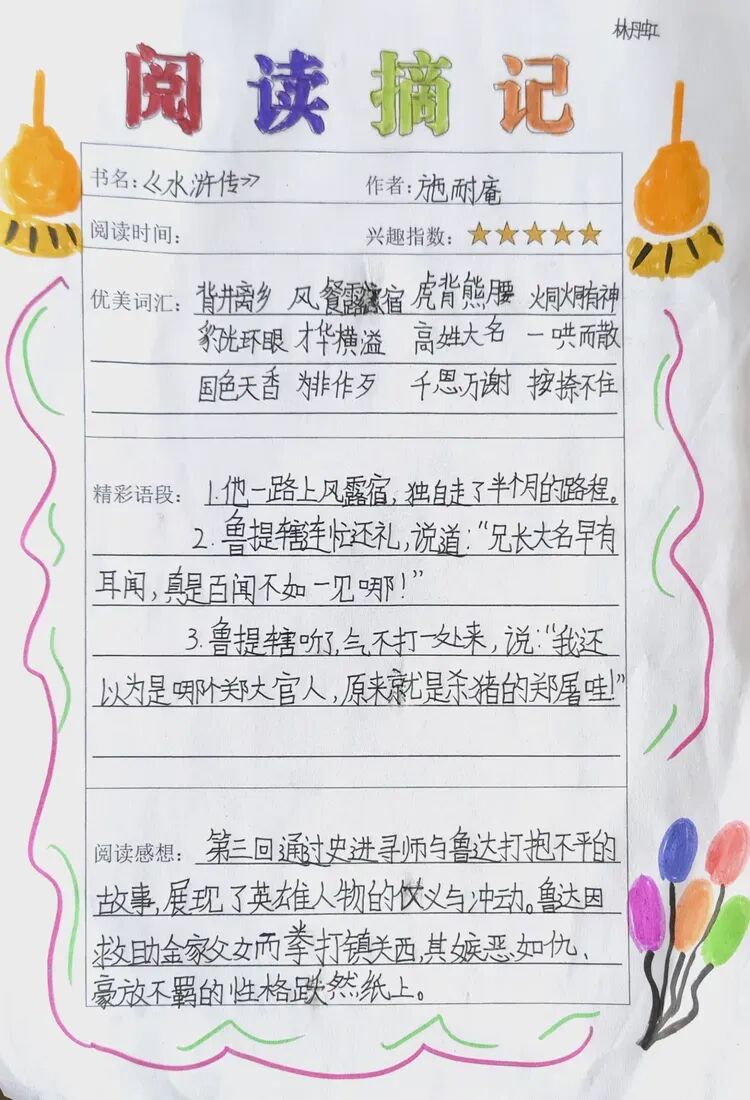 林丹虹
阅读摘记
书名：《水浒传》 作者：施耐庵
阅读时间： 兴趣指数：★★★★★
优美词汇： 背井离乡 风餐露宿 虎背熊腰 炯炯有神
豹眼环眼 才华横溢 高姓大名 一哄而散
国色天香 为非作歹 千恩万谢 按捺不住
精彩语段： 1.他一路上风露宿，独自走了半个月的路程。
2.鲁提辖连忙还礼，说道：“兄长大名早有
耳闻，真是百闻不如一见哪！”
3.鲁提辖听了，气不打一处来，说：“我还
以为是哪个郑大官人，原来就是杀猪的郑屠哇！”
阅读感想： 第三回通过史进寻师与鲁达打抱不平的
故事，展现了英雄人物的仗义与冲动。鲁达因
救助金家父女而拳打镇关西，其嫉恶如仇、
豪放不羁的性格跃然纸上。